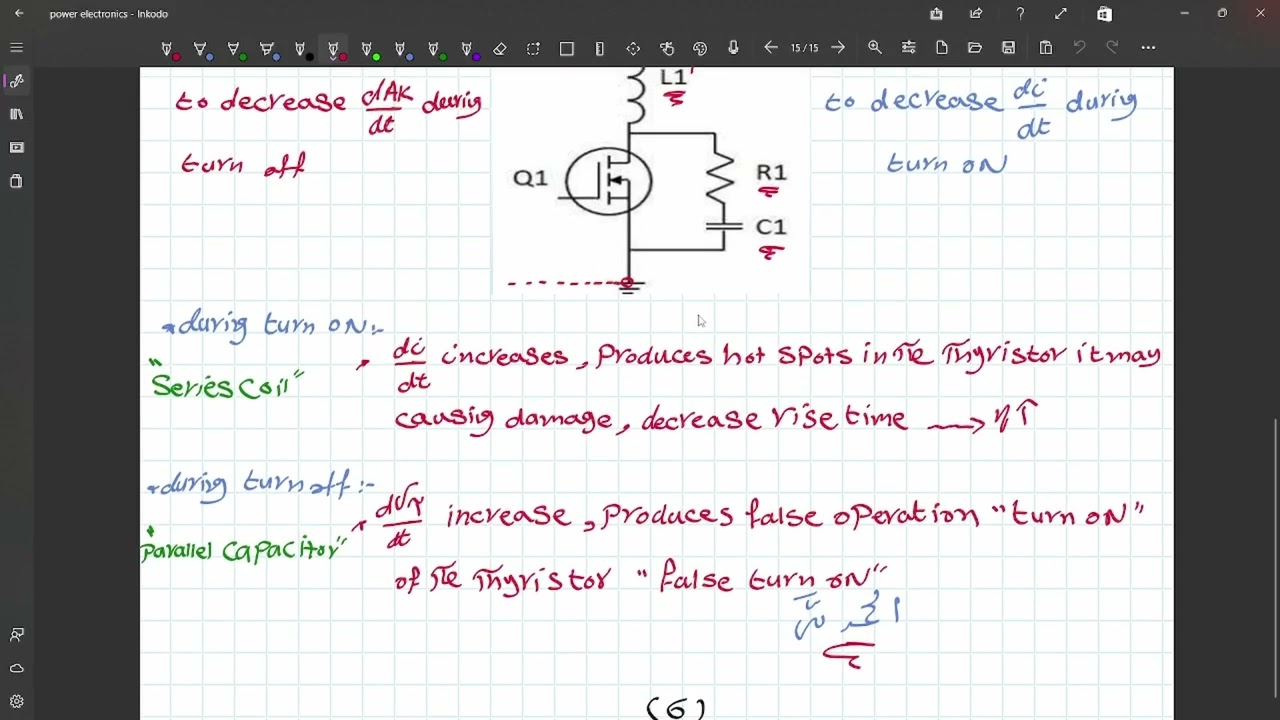 power electronics - Inkodo
15/15
to decrease dAK/dt during
turn off
L1
Q1
R1
C1
to decrease di/dt during
turn ON
during turn ON:-
"Series Coil"
di/dt increases, Produces hot spots in The Thyristor it may
causig damage, decrease rise time → η↑
during turn off:-
"Parallel capacitor"
dV/dt increase, Produces false operation "turn ON"
of The Thyristor "false turn on"
(6)